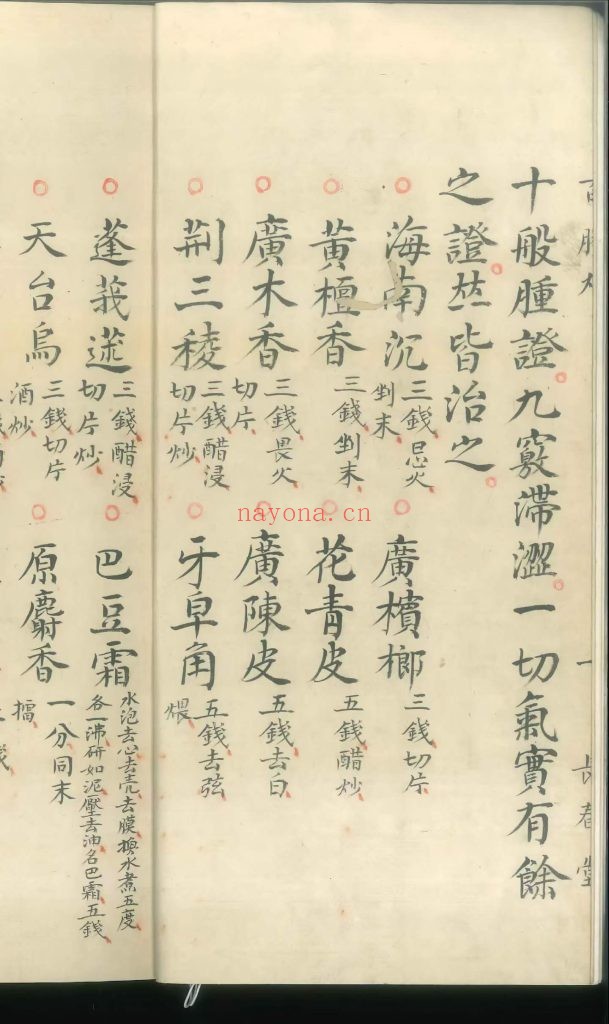 十般腫證九竅滯澀一切氣實有餘
之證𠀤皆治之
海南沉 三錢忌火
剉末
廣檳榔 三錢切片
黃檀香 三錢剉末
花青皮 五錢醋炒
廣木香 三錢畏火
切片
廣陳皮 五錢去白
荆三稜 三錢醋浸
切片炒
牙皁角 五錢去弦
煨
蓬莪蒁 三錢醋浸
切片炒
巴豆霜 水泡去心去壳去膜換水煮五度
各一沸研如泥壓去油名巴霜五錢
天台烏 三錢切片
酒炒
原麝香 一分同末
擂
一 長春堂
nayona.cn